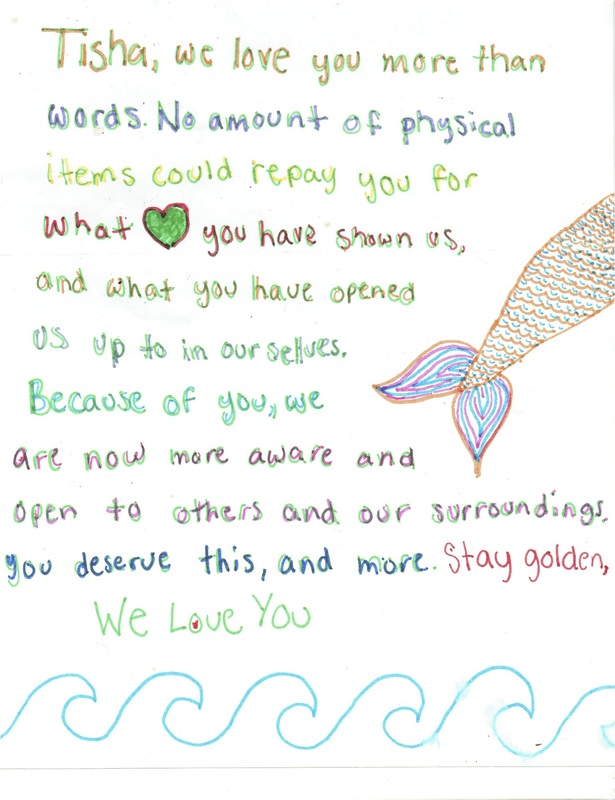 Tisha, we love you more than
words. No amount of physical
items could repay you for
what you have shown us,
and what you have opened
us up to in our selves.
Because of you, we
are now more aware and
open to others and our surroundings.
you deserve this, and more. Stay golden,
We Love You